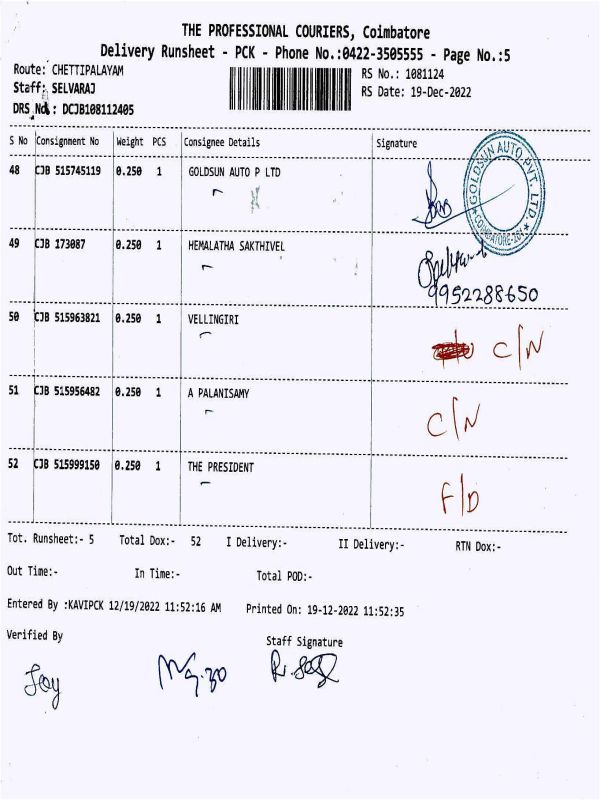 THE PROFESSIONAL COURIERS, Coimbatore
Delivery Runsheet - PCK - Phone No.:0422-3505555 - Page No.:5
Route: CHETTIPALAYAM RS No.: 1081124
Staff: SELVARAJ RS Date: 19-Dec-2022
DRS No.: DCJB108112405
S No Consignment No Weight PCS Consignee Details Signature
48 CJB 515745119 0.250 1 GOLDSUN AUTO P LTD
GOLDSUN AUTO PVT. LTD
49 CJB 173087 0.250 1 HEMALATHA SAKTHIVEL
9952288650
50 CJB 515963821 0.250 1 VELLINGIRI C/N
51 CJB 515956482 0.250 1 A PALANISAMY C/N
52 CJB 515999150 0.250 1 THE PRESIDENT F/D
Tot. Runsheet:- 5 Total Dox:- 52 I Delivery:- II Delivery:- RTN Dox:-
Out Time:- In Time:- Total POD:-
Entered By :KAVIPCK 12/19/2022 11:52:16 AM Printed On: 19-12-2022 11:52:35
Verified By Staff Signature
Joy